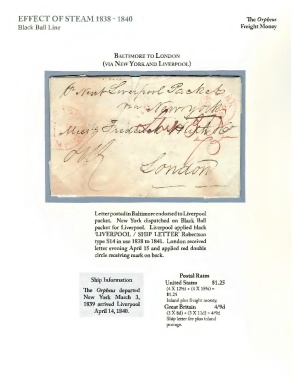 EFFECT OF STEAM 1838 - 1840
Black Ball Line
The Orpheus
Freight Money
BALTIMORE TO LONDON
(VIA NEW YORK AND LIVERPOOL)
Next Liverpool Packet
via New york
Mess Frederick Huth & Co
London
Letter posted in Baltimore endorsed to Liverpool
packet. New York dispatched on Black Ball
packet for Liverpool. Liverpool applied black
LIVERPOOL / SHIP LETTER Robertson
type S14 in use 1838 to 1841. London received
letter evening April 15 and applied red double
circle receiving mark on back.
Ship Information
The Orpheus departed
New York March 3,
1839 arrived Liverpool
April 14, 1840.
Postal Rates
United States $1.25
$1.25
Inland plus freight money.
Great Britain 4/9d
Ship letter fee plus inland
postage.